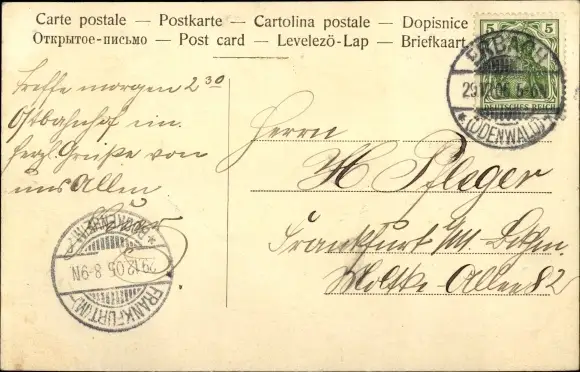 Carte postale — Postkarte — Cartolina postale — Dopisnice
Открытое-письмо — Post card — Levelező-Lap — Briefkaart
5 5
DEUTSCHES REICH
ERBACH
29.12.05. 5-6N
*(ODENWALD)*
Treffe morgen 2 30
Ostbahnhof ein.
Herzl. Grüße von
uns Allen
Herrn
H Pfleger
Frankfurt a/M. Bkhm.
Moltke-Allee 82
*BOCKENHEIM
29.12.05. 8-9N
FRANKFURT(M)